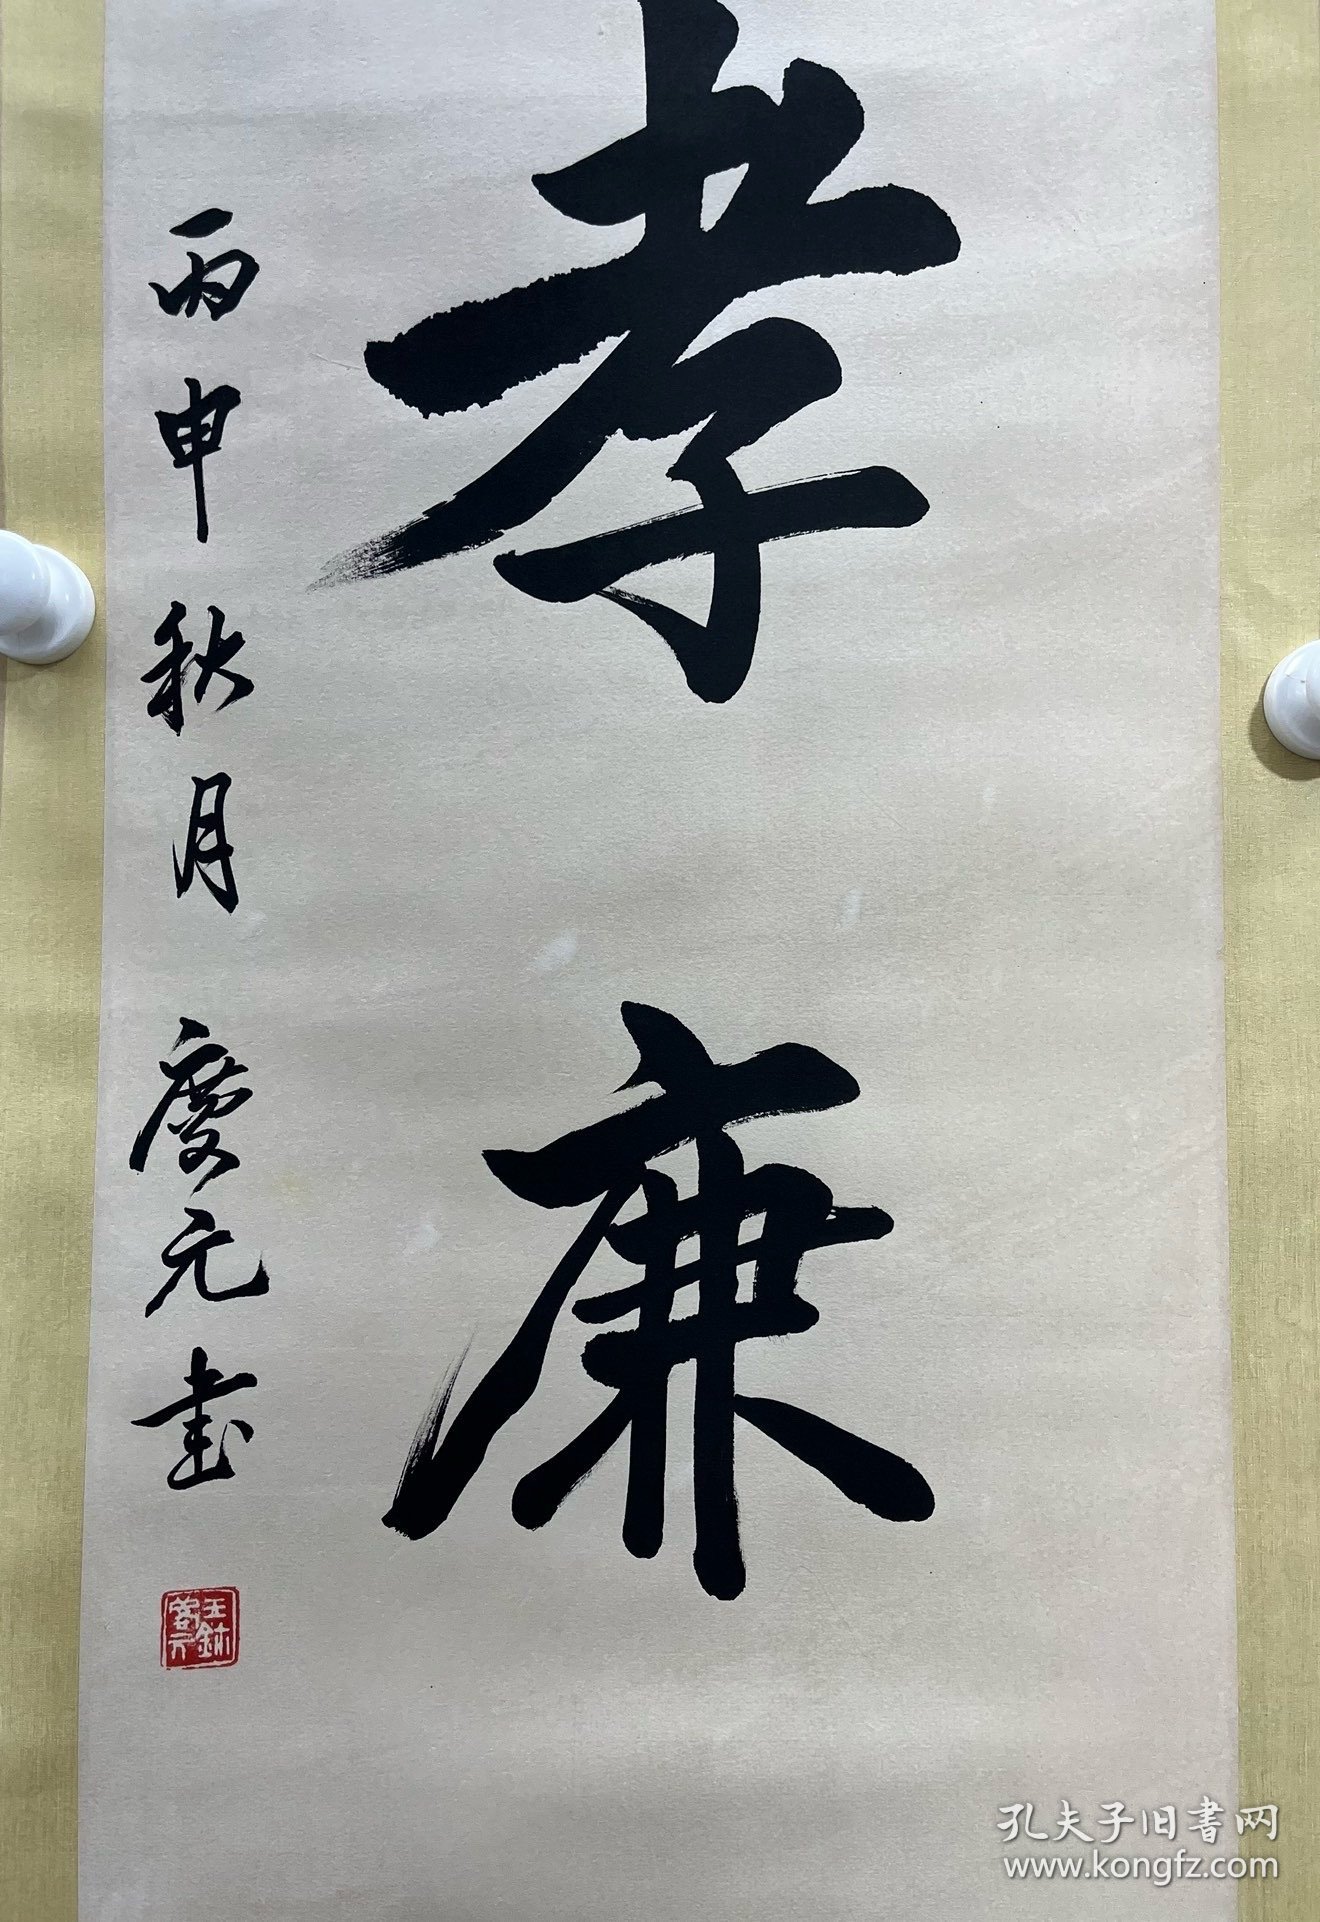 孝廉
丙申秋月 慶元書
孔夫子旧书网
www.kongfz.com